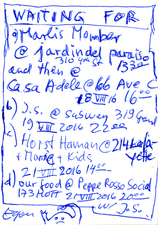 WAITING FOR
a) Marlis Momber
@ jardindel paraiso
310 4th St 13:00
and then @
Casa Adele @ 66 Ave C
18 VIII 16 16:00
b) J.S. @ Subway 319 Grand
19 VIII 2016 22:00
c) Horst Haman @ 214 Lafa-
yette
+ Maria + Kids
21/VIII 2016 14:00
d) our food @ Peppe Rosso Social
173 Mott 21 VIII 2016 20:00
w/ J.S.